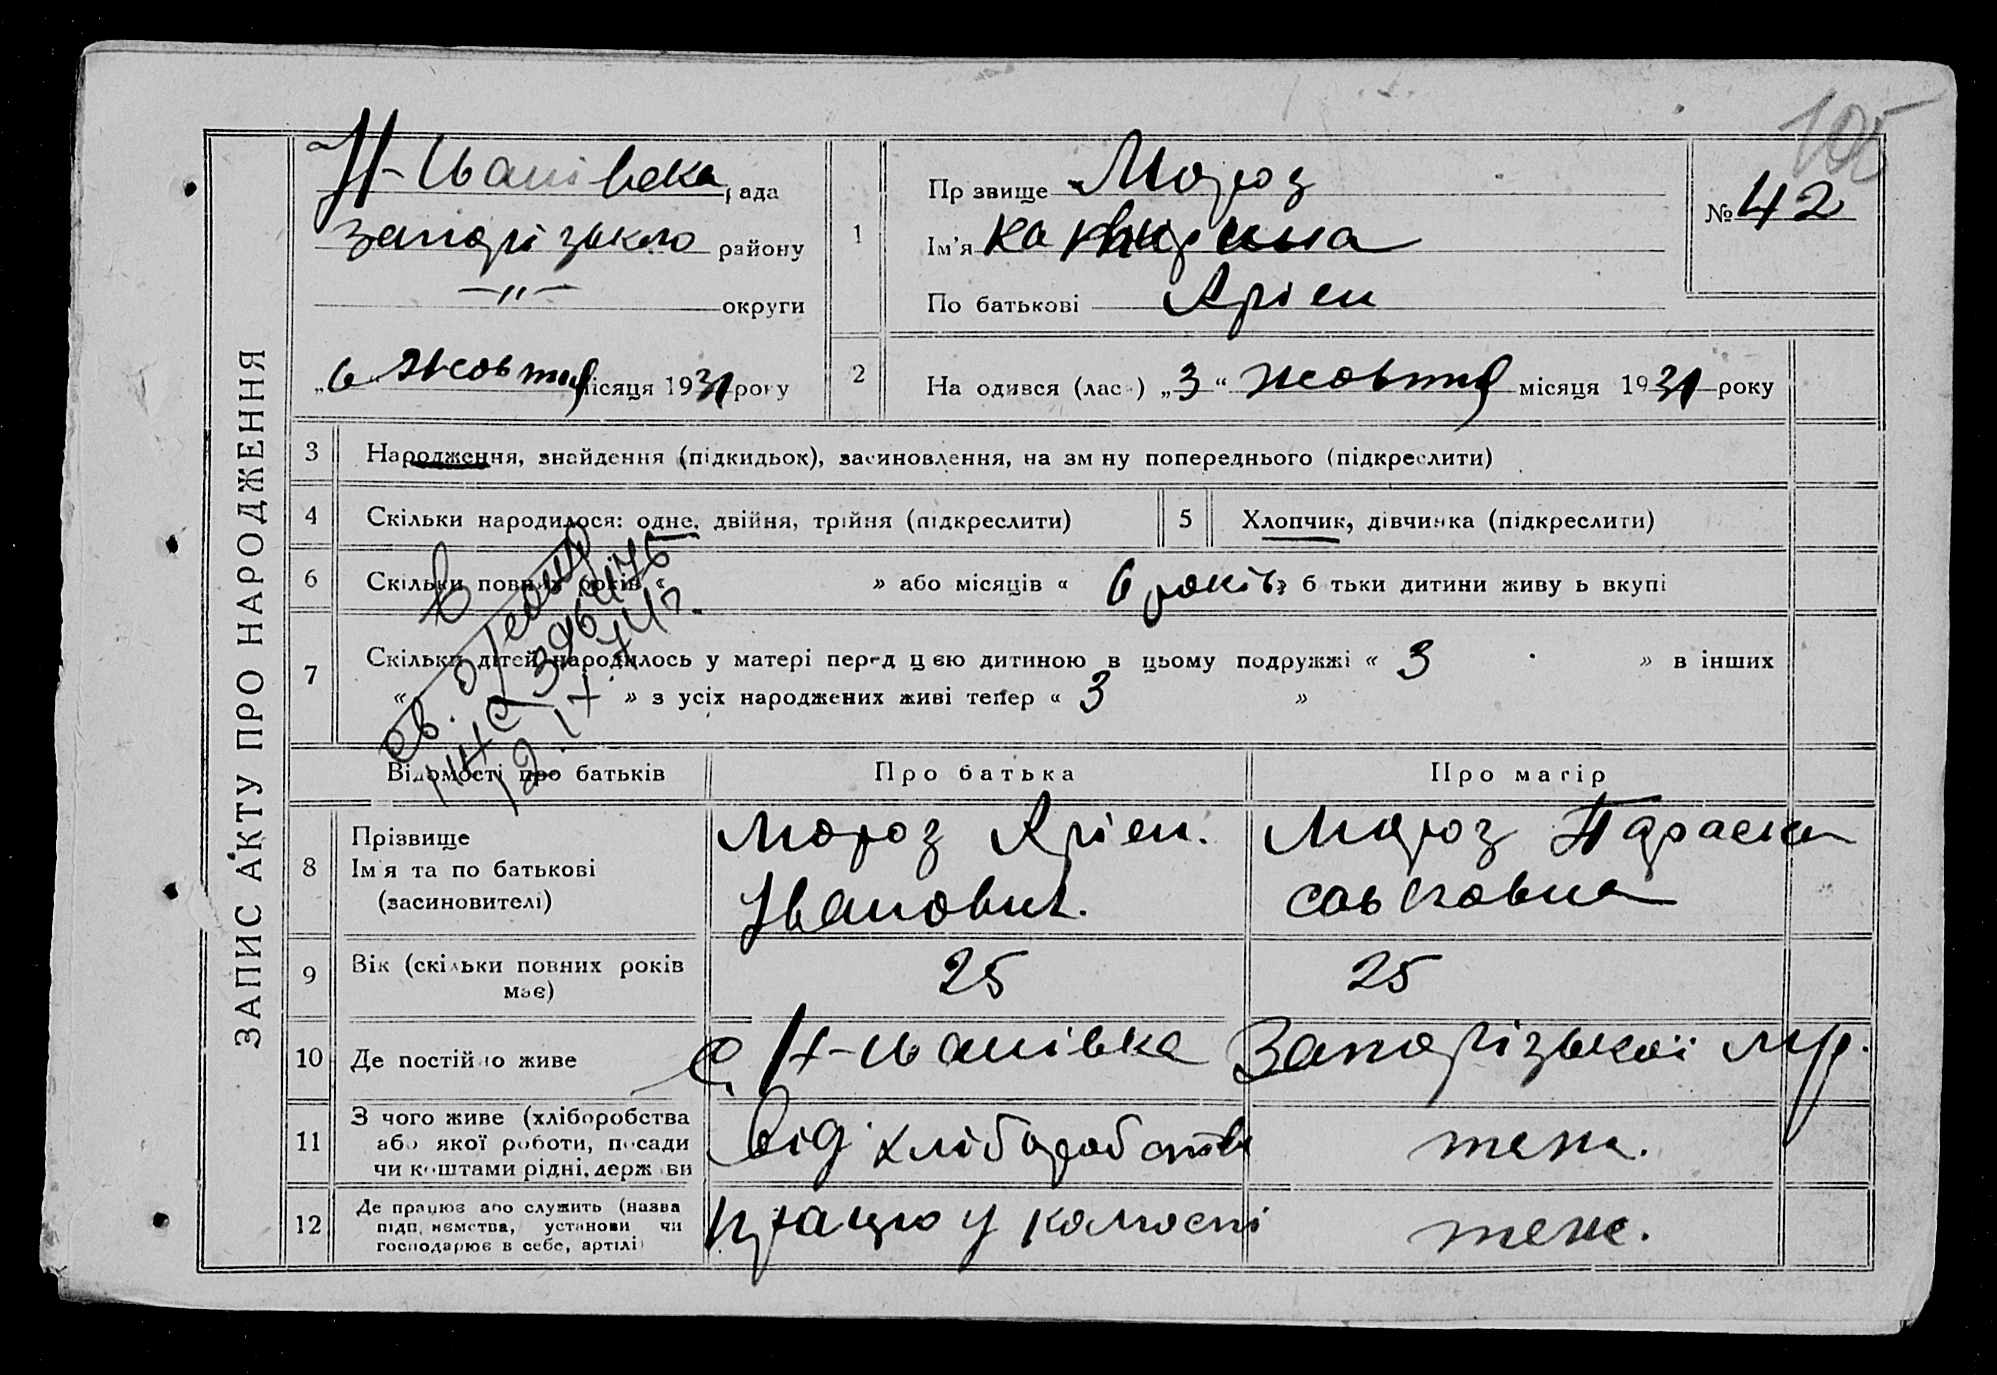 105
ЗАПИС АКТУ ПРО НАРОДЖЕННЯ
Н-Іванівска рада
запорізького району
—〃— округи
„6 жовтня місяця 1931 року
1
Прізвище Мороз
Ім'я Катерина
По батькові Арієн
№ 42
2
На одився (лас ) „3“ жовтня місяця 1931 року
3 Народження, знайдення (підкидьок), засиновлення, на зм ну попереднього (підкреслити)
4 Скільки народилося: одне, двійня, трійня (підкреслити)
5 Хлопчик, дівчинка (підкреслити)
6 Скільки повних років « » або місяців « 6 років» б тьки дитини живу ь вкупі
7 Скільки дітей народилось у матері перед цією дитиною в цьому подружжі « 3 » в інших
« » з усіх народжених живі тепер « 3 »
12.IX
Відомості про батьків
Про батька
Про матір
8 Прізвище
Ім'я та по батькові
(засиновителі)
Мороз Арієн.
Іванович.
Мороз Параска
Савковна
9 Вік (скільки повних років
має)
25
25
10 Де постійно живе
с. Н-Іванівка Запорізької мр.
11 З чого живе (хліборобства
або якої роботи, посади
чи коштами рідні, держ ви
від хліборобства
теж.
12 Де працює або служить (назва
підп. ємства, установи чи
господарює в себе, артілі)
працюю у колгоспі
теж.